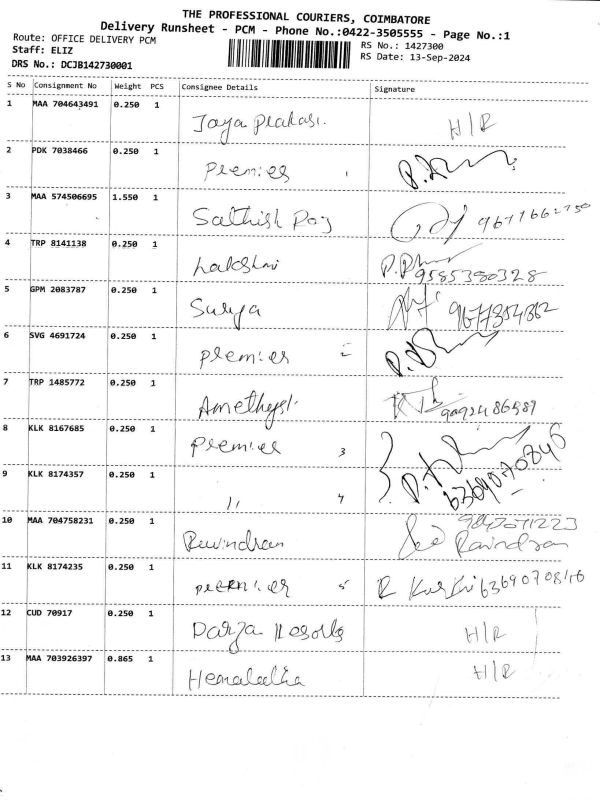 THE PROFESSIONAL COURIERS, COIMBATORE
Delivery Runsheet - PCM - Phone No.:0422-3505555 - Page No.:1
Route: OFFICE DELIVERY PCM
RS No.: 1427300
Staff: ELIZ
RS Date: 13-Sep-2024
DRS No.: DCJB142730001
S No Consignment No Weight PCS Consignee Details Signature
1 MAA 704643491 0.250 1 Jaya H/R
2 PDK 7038466 0.250 1 Premier 1
3 MAA 574506695 1.550 1 Sathish Raj
4 TRP 8141138 0.250 1 Lakshmi 9585380328
5 GPM 2083787 0.250 1 Surya
6 SVG 4691724 0.250 1 premier
7 TRP 1485772 0.250 1 Amethyst
8 KLK 8167685 0.250 1 premier 3
9 KLK 8174357 0.250 1 11 4 6369070846
10 MAA 704758231 0.250 1 Ravindran Ravindran
11 KLK 8174235 0.250 1 premier 5
12 CUD 70917 0.250 1 H/R
13 MAA 703926397 0.865 1 Hemalatha H/R